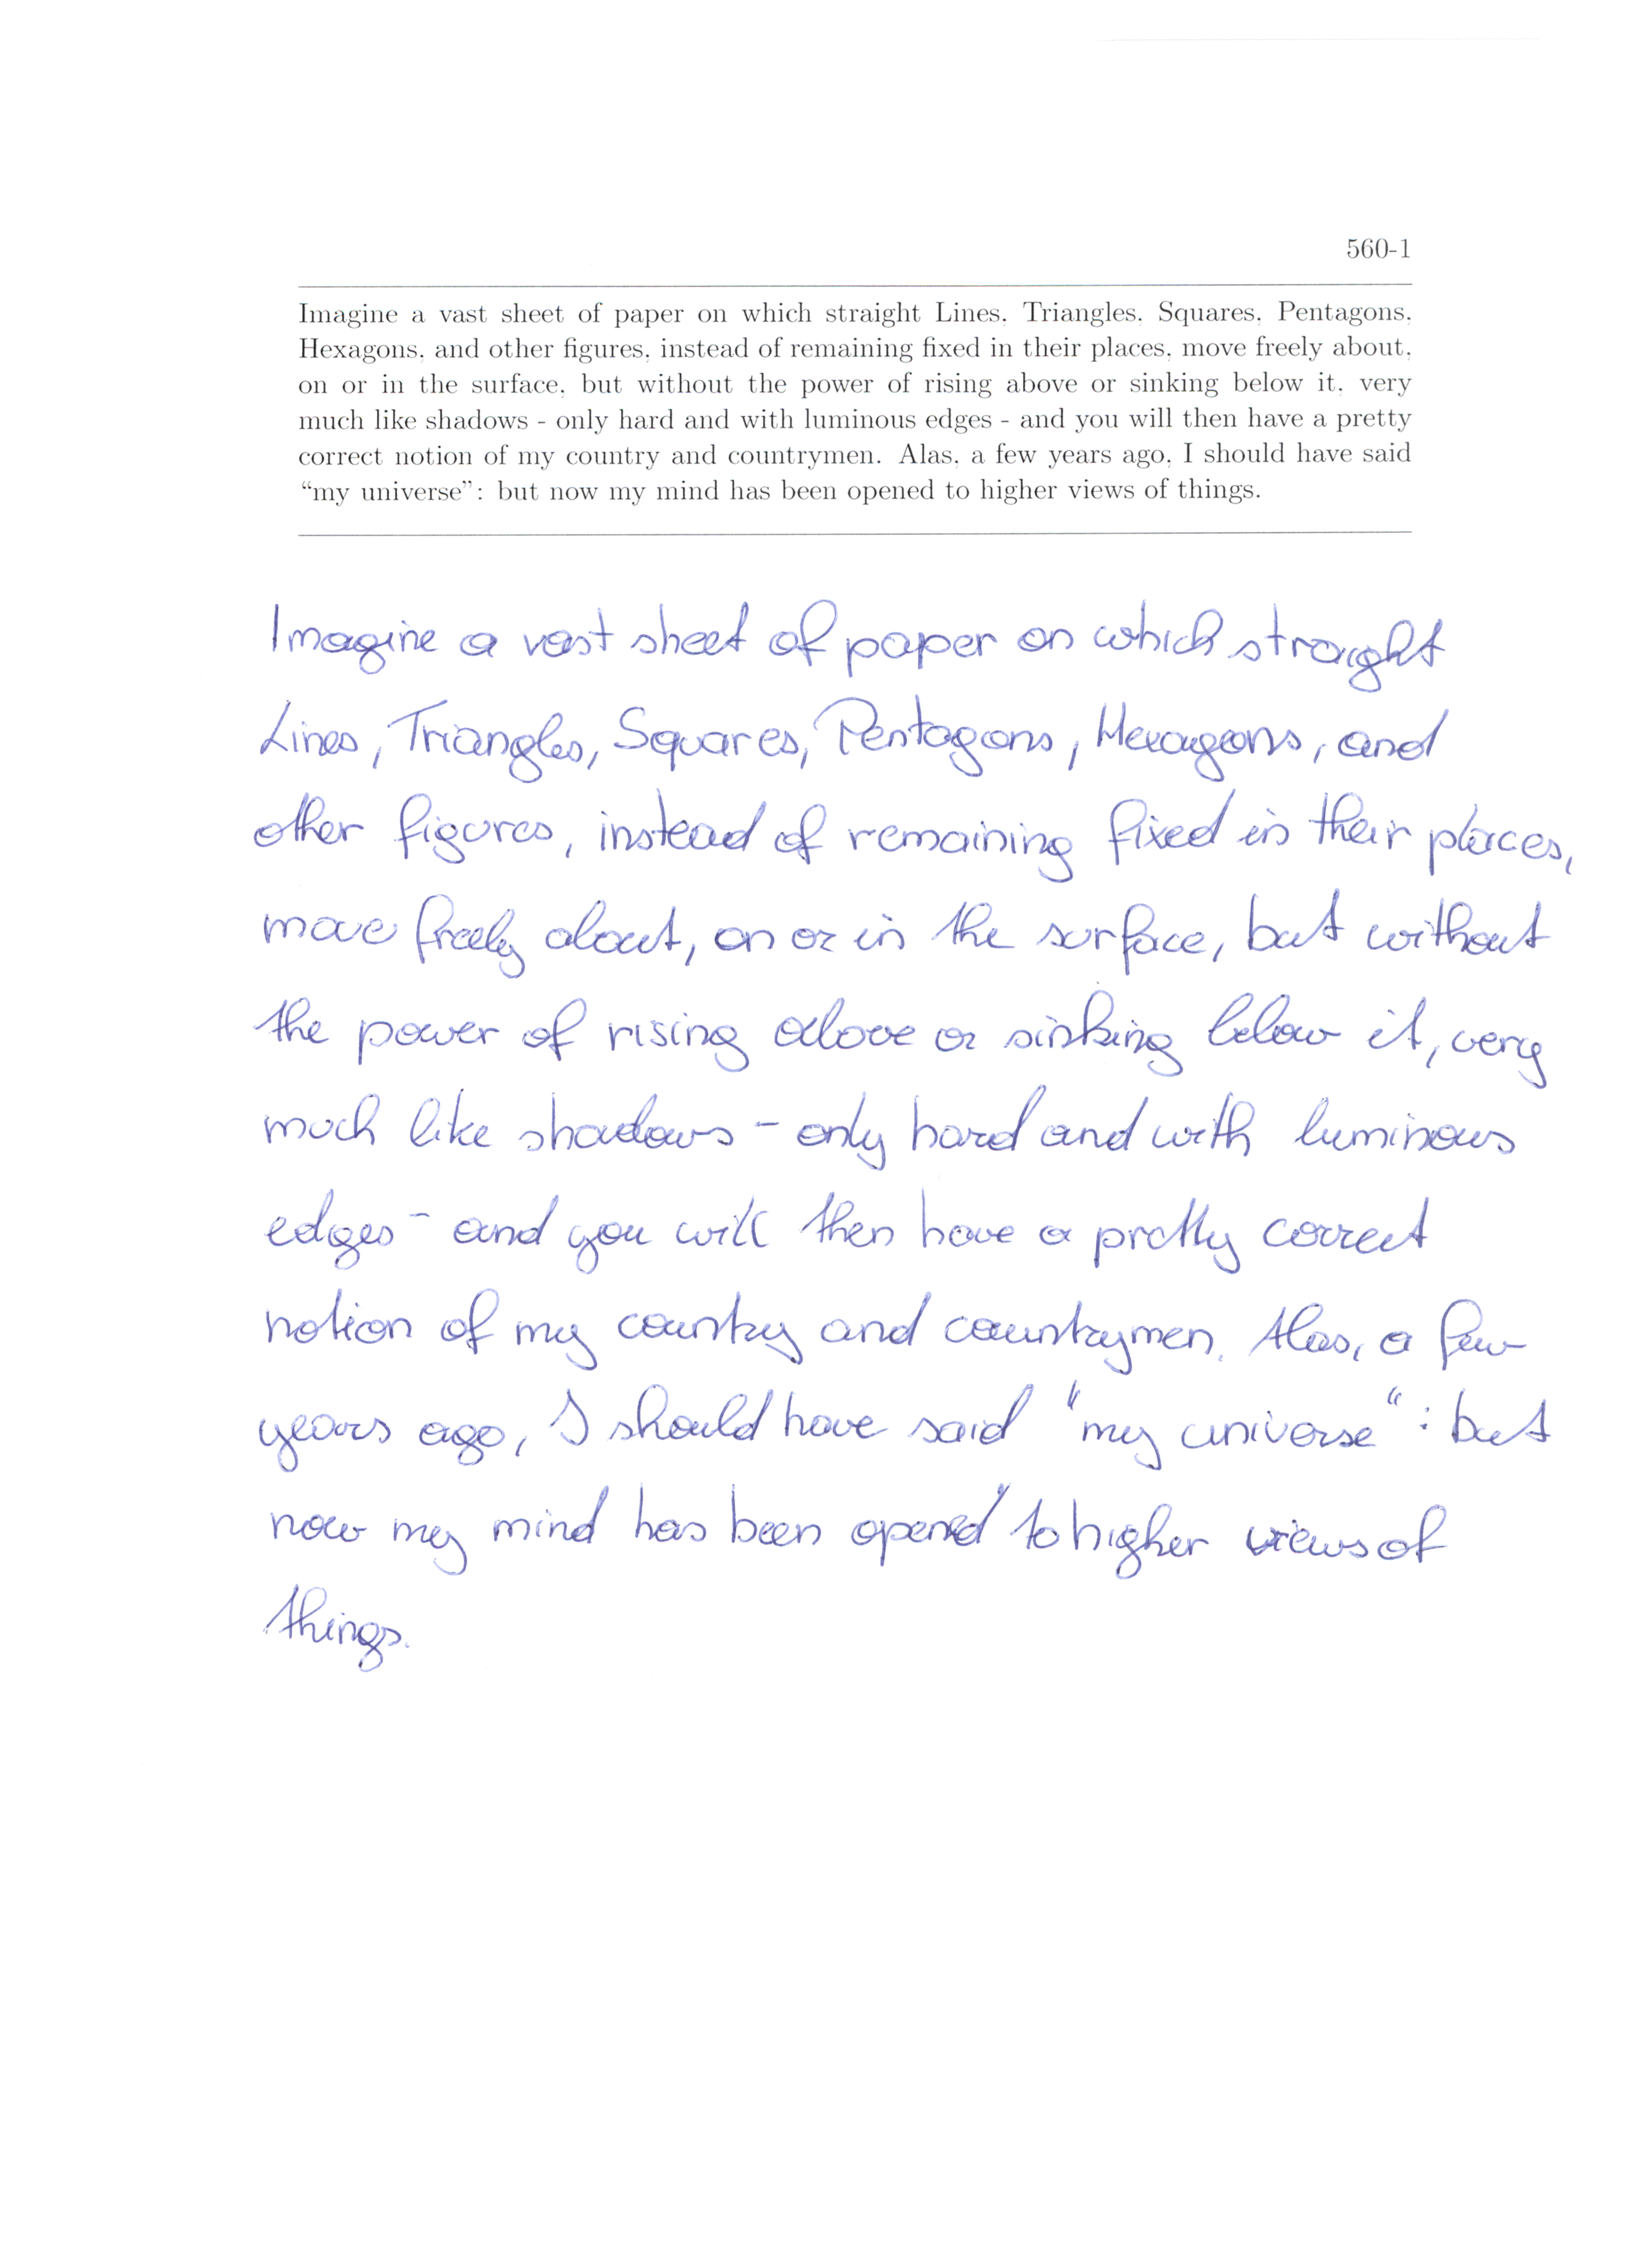 560-1
Imagine a vast sheet of paper on which straight Lines, Triangles, Squares, Pentagons,
Hexagons, and other figures, instead of remaining fixed in their places, move freely about,
on or in the surface, but without the power of rising above or sinking below it, very
much like shadows - only hard and with luminous edges - and you will then have a pretty
correct notion of my country and countrymen. Alas, a few years ago, I should have said
“my universe”: but now my mind has been opened to higher views of things.
Imagine a vast sheet of paper on which straight
Lines, Triangles, Squares, Pentagons, Hexagons, and
other figures, instead of remaining fixed in their places,
move freely about, on or in the surface, but without
the power of rising above or sinking below it, very
much like shadows - only hard and with luminous
edges - and you will then have a pretty correct
notion of my country and countrymen. Alas, a few
years ago, I should have said "my universe“: but
now my mind has been opened to higher views of
things.